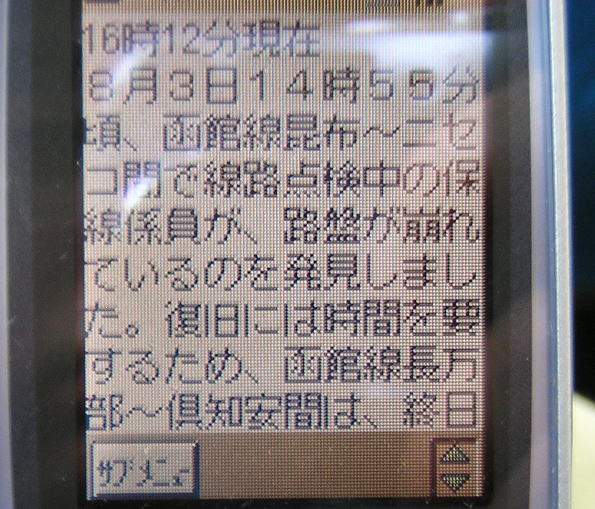 16時12分現在
８月３日１４時５５分
頃、函館線昆布～ニセ
コ間で線路点検中の保
線係員が、路盤が崩れ
ているのを発見しまし
た。復旧には時間を要
するため、函館線長万
部～倶知安間は、終日
ｻﾌﾞﾒﾆｭｰ